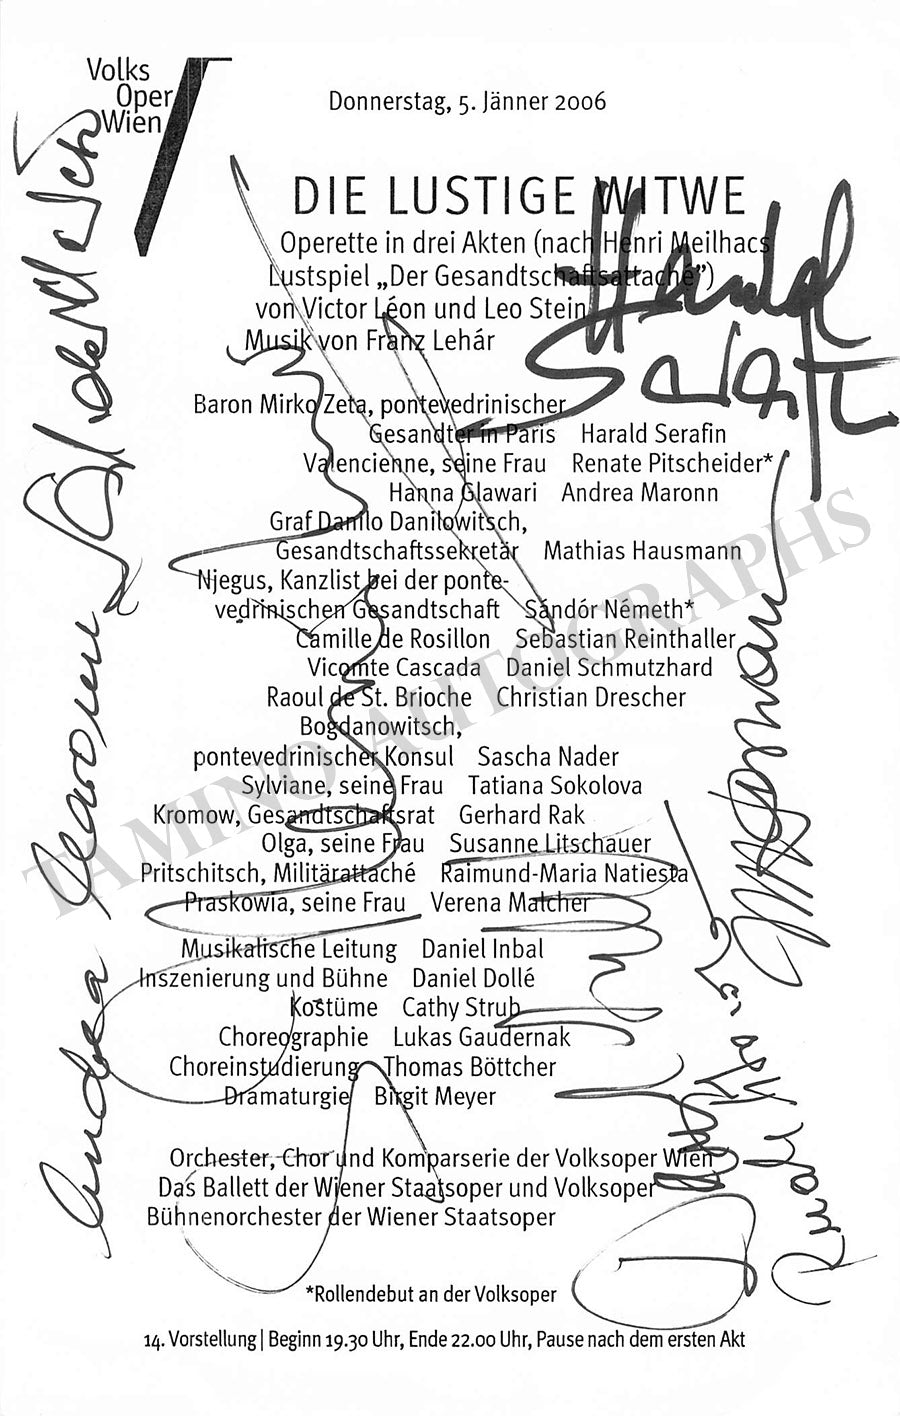 Volks
Oper
Wien
Donnerstag, 5. Jänner 2006
DIE LUSTIGE WITWE
Operette in drei Akten (nach Henri Meilhacs
Lustspiel „Der Gesandtschaftsattaché”)
von Victor Léon und Leo Stein
Musik von Franz Lehár
Baron Mirko Zeta, pontevedrinischer
Gesandter in Paris Harald Serafin
Valencienne, seine Frau Renate Pitscheider*
Hanna Glawari Andrea Maronn
Graf Danilo Danilowitsch,
Gesandtschaftssekretär Mathias Hausmann
Njegus, Kanzlist bei der ponte-
vedrinischen Gesandtschaft Sándór Németh*
Camille de Rosillon Sebastian Reinthaller
Vicomte Cascada Daniel Schmutzhard
Raoul de St. Brioche Christian Drescher
Bogdanowitsch,
pontevedrinischer Konsul Sascha Nader
Sylviane, seine Frau Tatiana Sokolova
Kromow, Gesandtschaftsrat Gerhard Rak
Olga, seine Frau Susanne Litschauer
Pritschitsch, Militärattaché Raimund-Maria Natiesta
Praskowia, seine Frau Verena Malcher
Musikalische Leitung Daniel Inbal
Inszenierung und Bühne Daniel Dollé
Kostüme Cathy Strub
Choreographie Lukas Gaudernak
Choreinstudierung Thomas Böttcher
Dramaturgie Birgit Meyer
Orchester, Chor und Komparserie der Volksoper Wien
Das Ballett der Wiener Staatsoper und Volksoper
Bühnenorchester der Wiener Staatsoper
*Rollendebut an der Volksoper
14. Vorstellung | Beginn 19.30 Uhr, Ende 22.00 Uhr, Pause nach dem ersten Akt
Harald
Serafin
Andrea Maronn
TAMINO AUTOGRAPHS